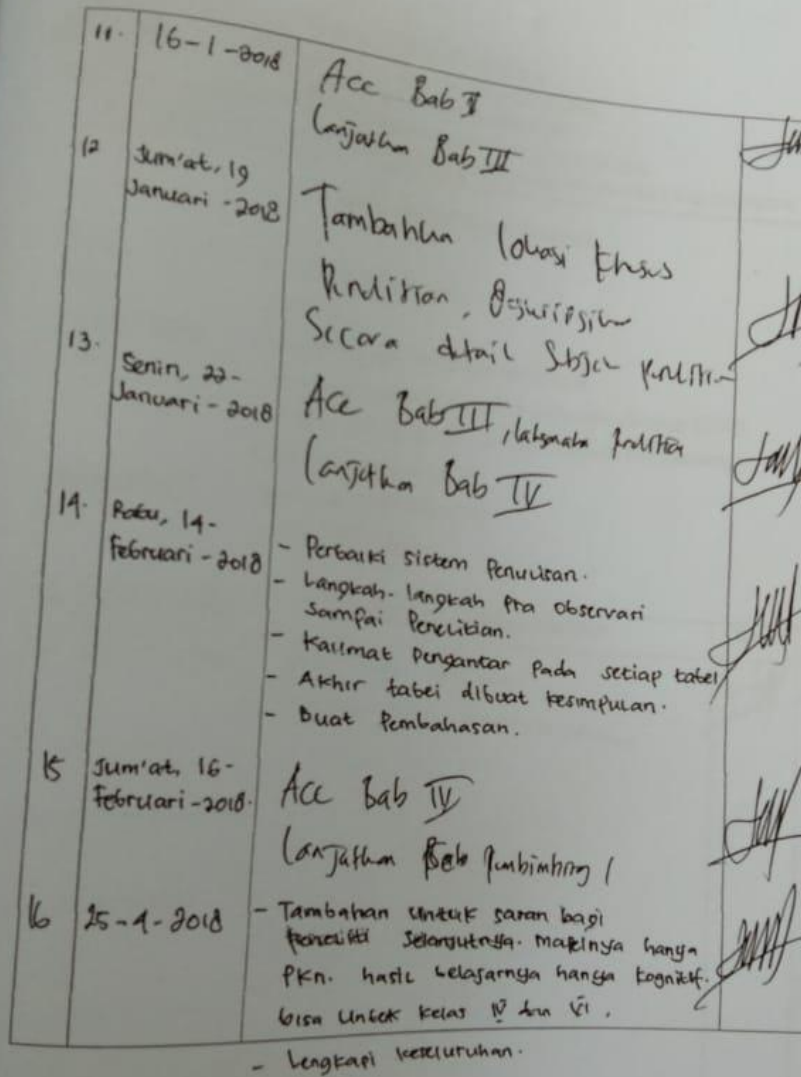 11. 16-1-2018
Acc Bab II
Lanjutkan Bab III
12 Jum'at, 19
Januari - 2018
Tambahkan lokasi khusus
Penelitian, Deskripsikan
Secara detail Subjek penelitian
13. Senin, 22-
Januari - 2018
Acc Bab III, laksanakan penelitian
Lanjutkan Bab IV
14. Rabu, 14-
Februari - 2018
- Perbaiki sistem Penulisan.
- Langkah-langkah pra observasi
sampai Penelitian.
- Kalimat Pengantar Pada setiap tabel
- Akhir tabel dibuat kesimpulan.
- Buat Pembahasan.
15 Jum'at, 16-
Februari - 2018.
Acc Bab IV
Lanjutkan pembimbing I
16 25-4-2018
- Tambahan untuk saran bagi
peneliti selanjutnya. mapelnya hanya
PKn. hasil belajarnya hanya kognitif.
bisa untuk kelas IV dan VI.
- Lengkapi keseluruhan.